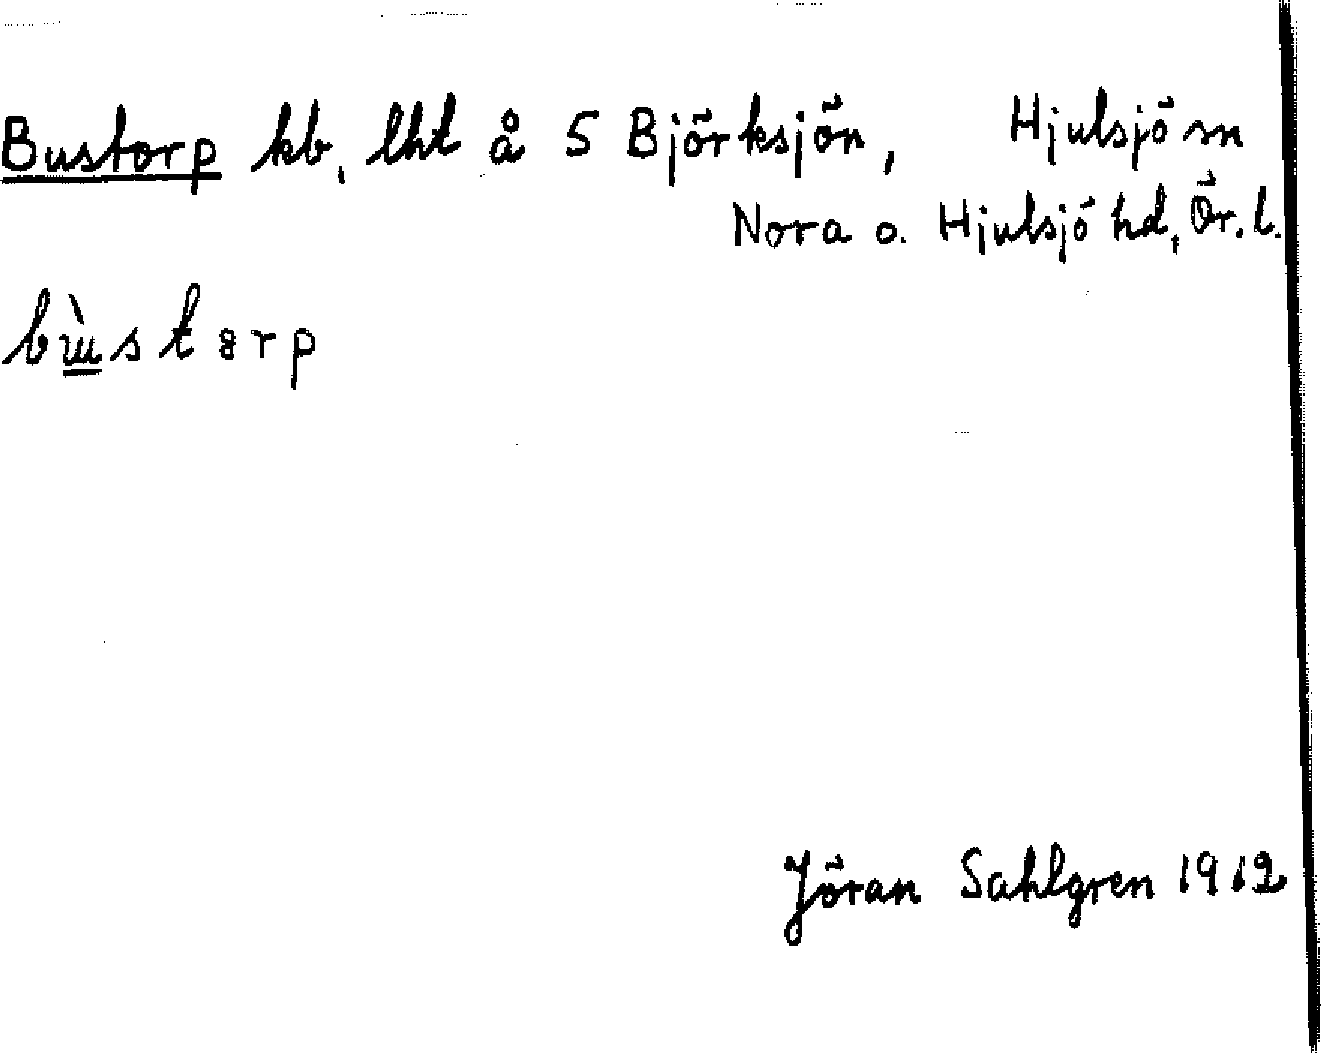 Bustorp kb, lht å 5 Björksjön, Hjulsjö sn
Nora o. Hjulsjö hd, Ör. l.
Jöran Sahlgren 1912